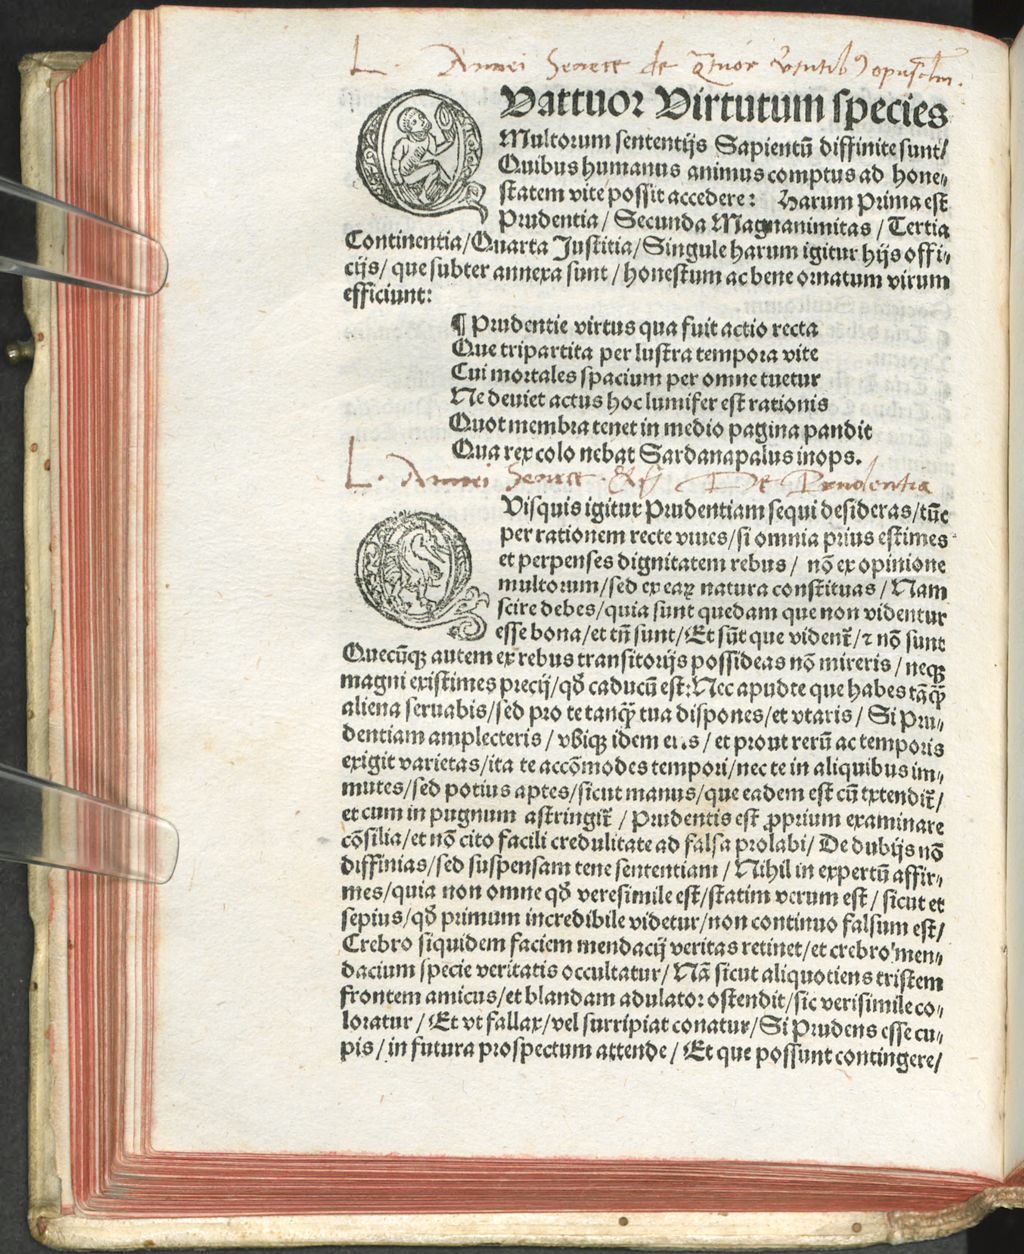 L. Annei Senece de q̃tuor v̓tutib⁹ opusc̃lm.
QVattuor Virtutum species
Multorum sententijs Sapientũ diffinite sunt/
Quibus humanus animus comptus ad hone⸗
statem vite possit accedere: Harum Prima est
Prudentia/ Secunda Magnanimitas/ Tertia
Continentia/Quarta Justitia/Singule harum igitur hijs offi⸗
cijs/ que subter annexa sunt/ honestum ac bene ornatum virum
efficiunt:
¶ Prudentie virtus qua fuit actio recta
Que tripartita per lustra tempora vite
Cui mortales spacium per omne tuetur
Ne deviet actus hoc lumifer est rationis
Quot membra tenet in medio pagina pandit
Qua rex colo nebat Sardanapalus inops.
L. Annei Senece De Prudentia
QVisquis igitur Prudentiam sequi desideras/tũc
per rationem recte viues/si omnia prius estimes
et perpenses dignitatem rebus/ nõ ex opinione
multorum/sed ex eaꝝ natura constituas/ Nam
scire debes/quia sunt quedam que non videntur
esse bona/et tñ sunt/Et sũt que vident̃/⁊ nõ sunt
Quecũqꝫ autem ex rebus transitorijs possideas nõ mireris/ neqꝫ
magni existimes precij/qð caducũ est:Nec apud te que habes tãq̃ꝫ
aliena seruabis/sed pro te tanq̃ꝫ tua dispones/et vtaris/ Si Pru⸗
dentiam amplecteris/ vbiqꝫ idem eris/ et prout rerũ ac temporis
exigit varietas/ita te accõmodes tempori/nec te in aliquibus im⸗
mutes/sed potius aptes/sicut manus/que eadem est cũ extendit̃/
et cum in pugnum astringit̃/ Prudentis est ꝓprium examinare
cõsilia/et nõ cito facili credulitate ad falsa prolabi/ De dubijs nõ
diffinias/sed suspensam tene sententiam/ Nihil in expertũ affir⸗
mes/quia non omne qð veresimile est/statim verum est/ sicut et
sepius/qð primum incredibile videtur/non continuo falsum est/
Crebro siquidem faciem mendacij veritas retinet/et crebro men⸗
dacium specie veritatis occultatur/ Nã sicut aliquotiens tristem
frontem amicus/et blandam adulator ostendit/sic verisimile co⸗
loratur/ Et vt fallax/vel surripiat conatur/Si Prudens esse cu⸗
pis/ in futura prospectum attende/ Et que possunt contingere/